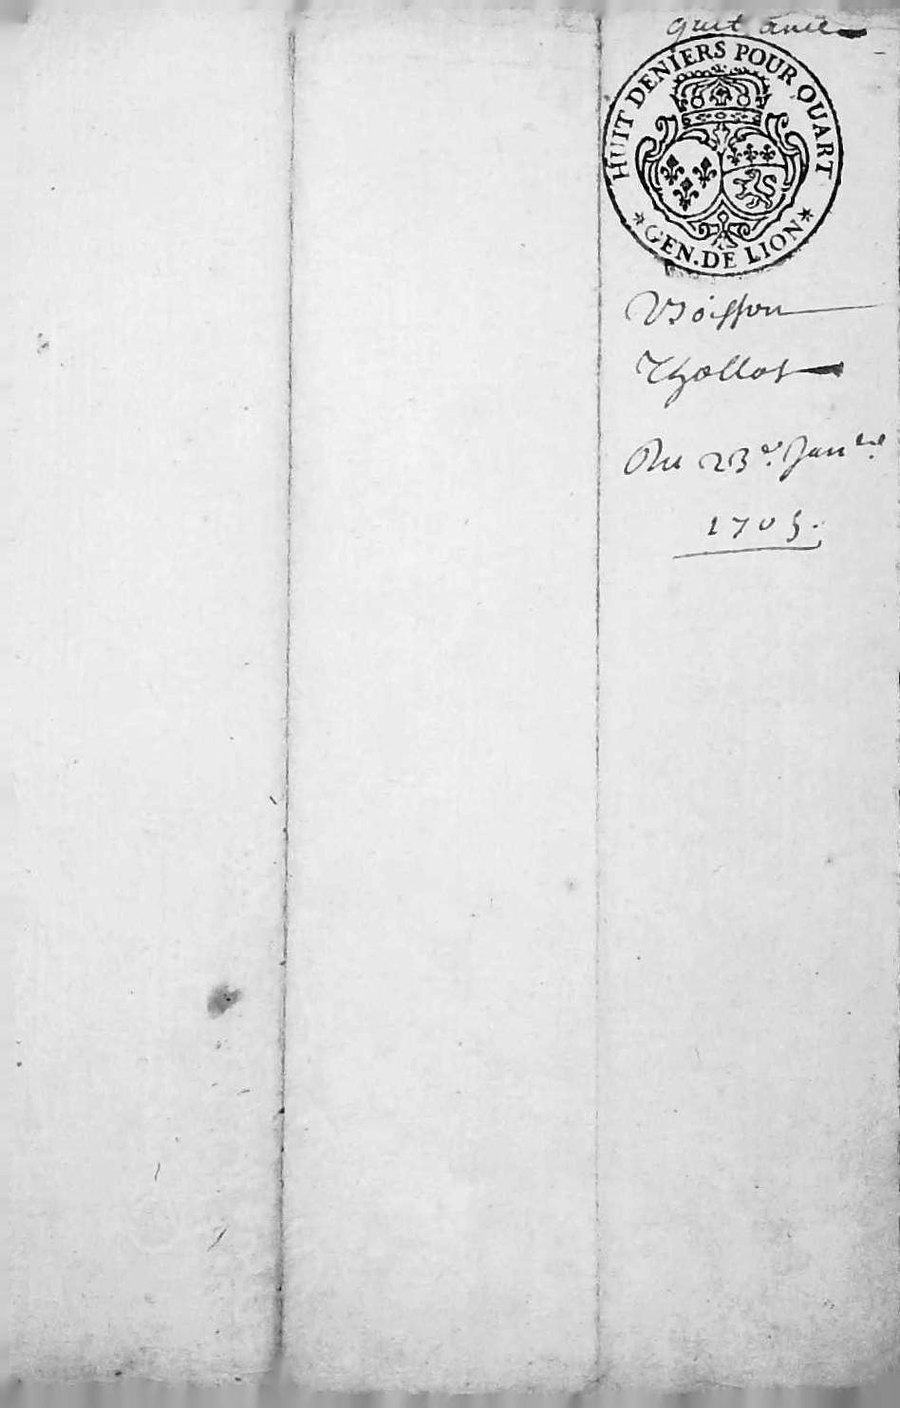 quittance
HUIT DENIERS POUR QUART
* GEN. DE LION *
Boisson
Thollot
Du 23e. Janer.
1705.